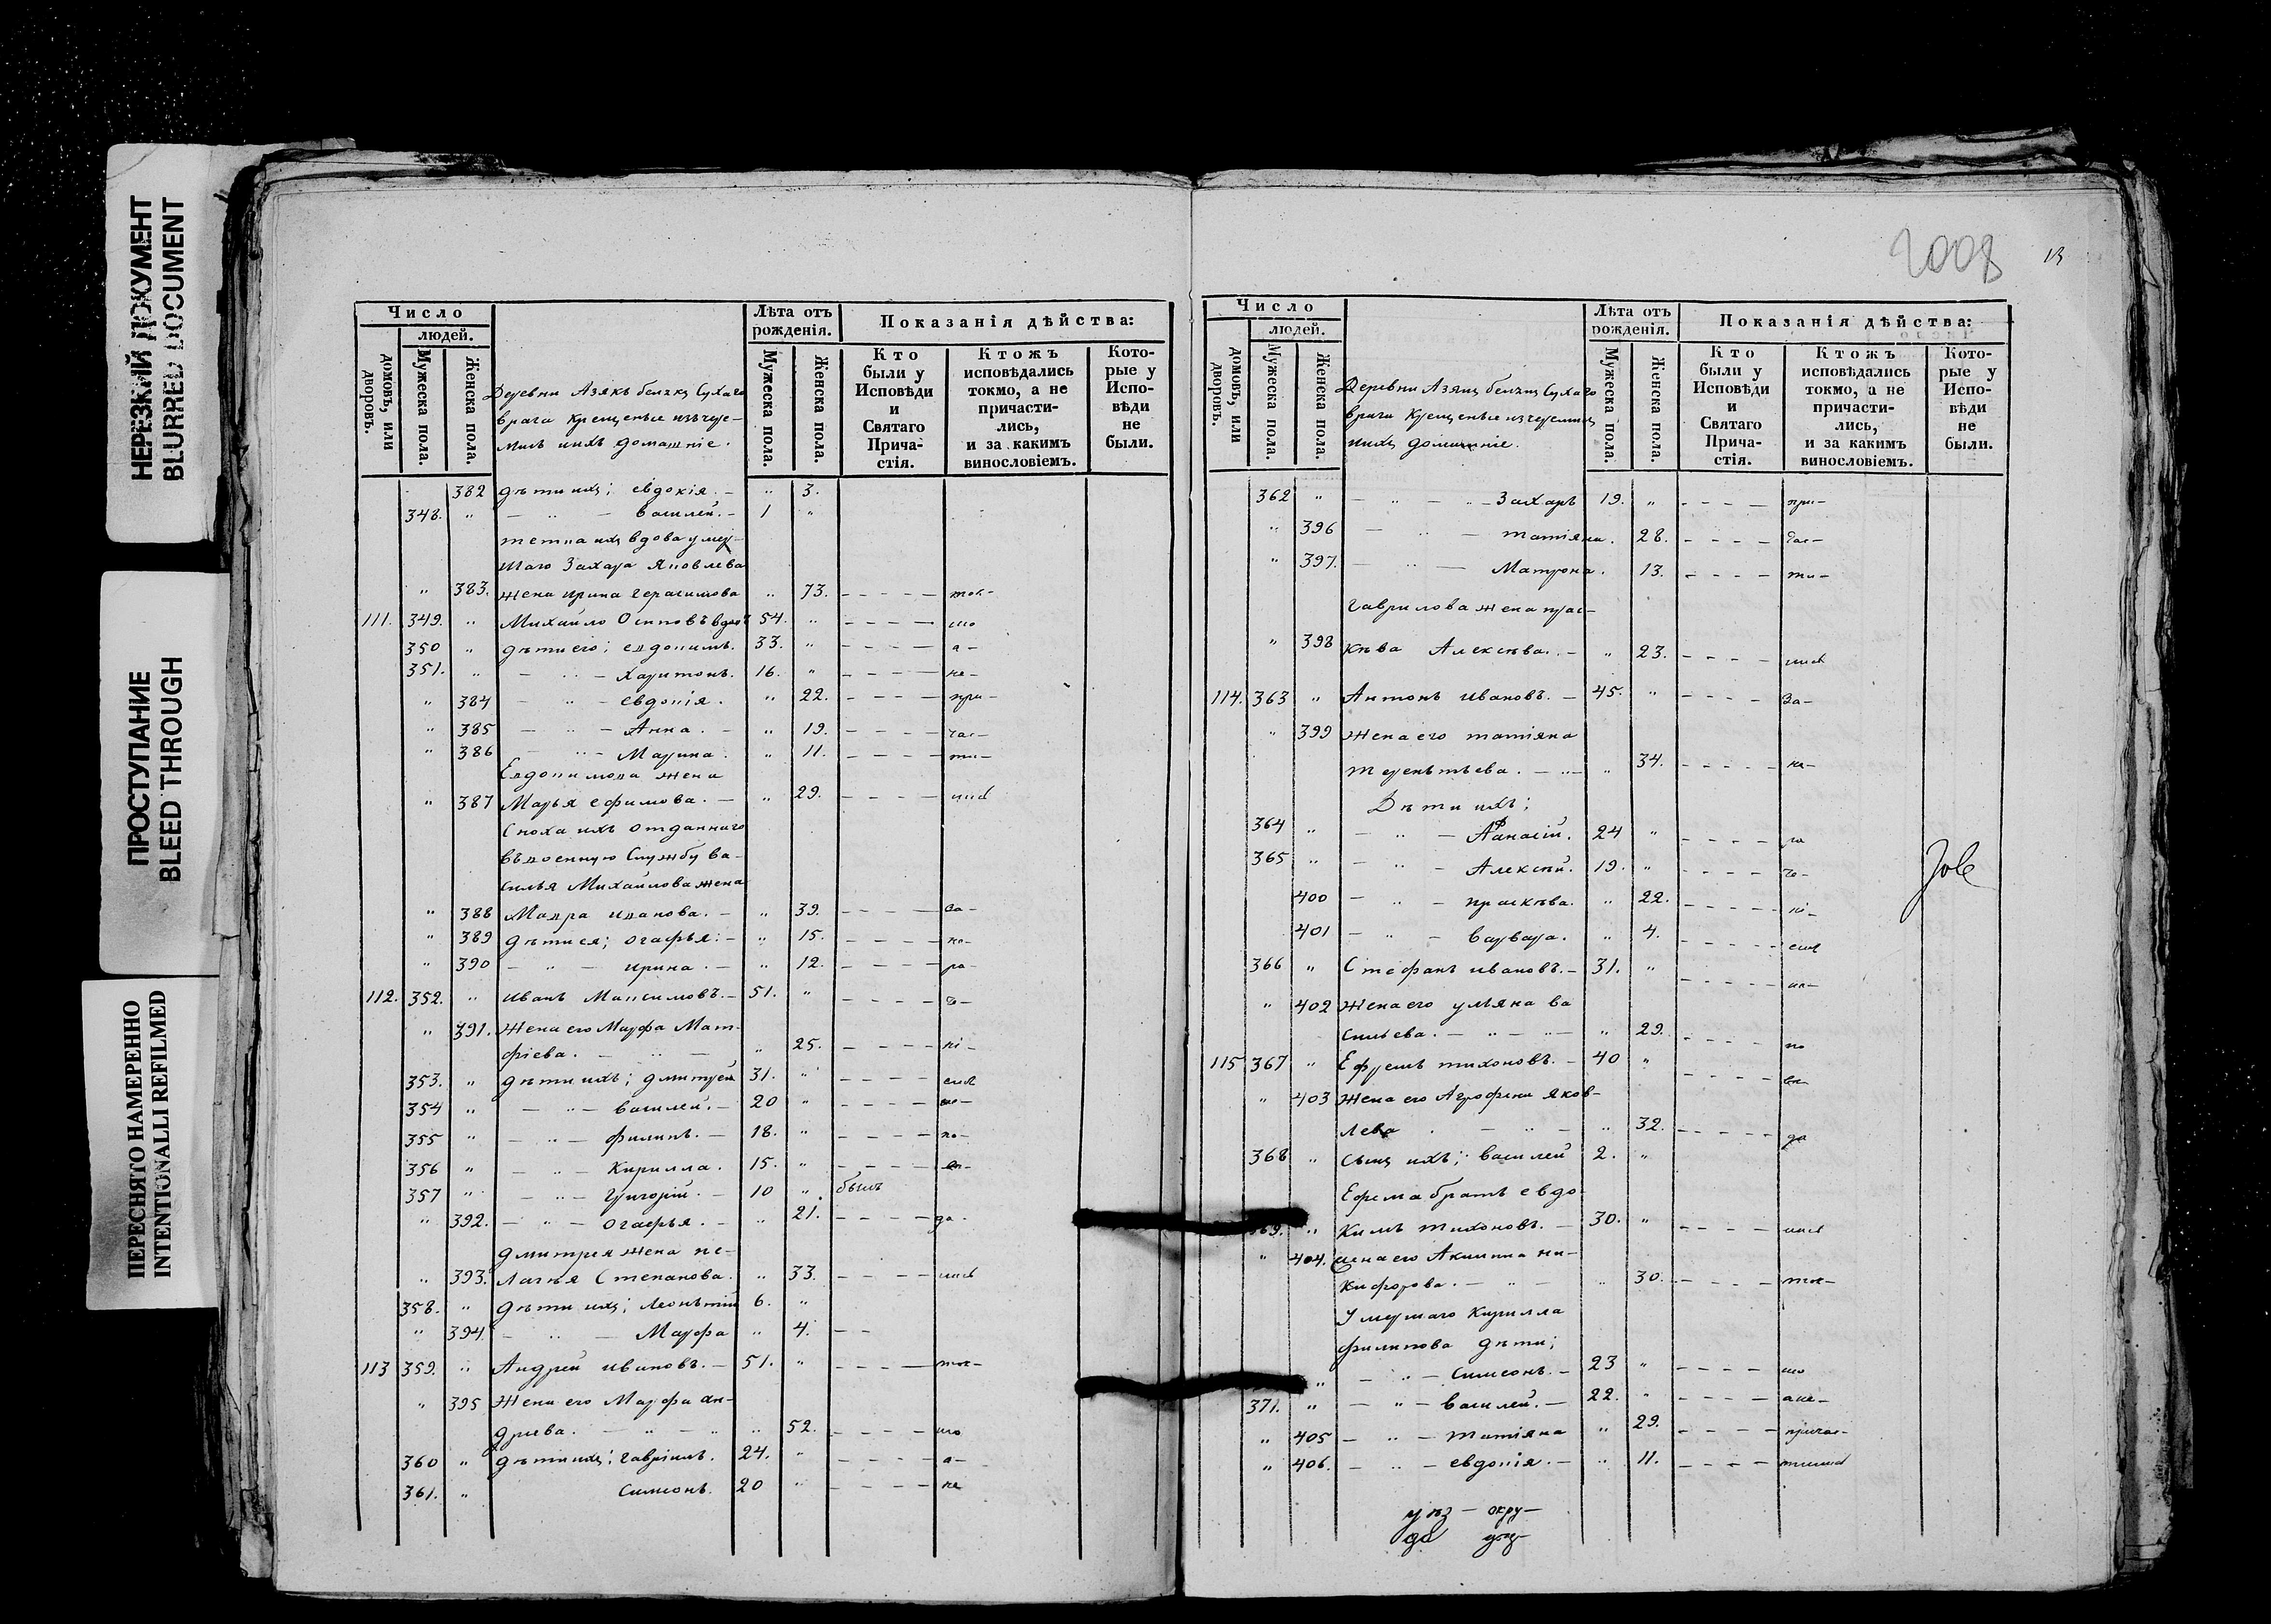 НЕРЕЗКИЙ ДОКУМЕНТ
BLURRED DOCUMENT
ПРОСТУПАНИЕ
BLEED THROUGH
ПЕРЕСНЯТО НАМЕРЕННО
INTENTIONALLI REFILMED
Число
людей.
домовъ, или дворовъ.
Мужеска пола.
Женска пола.
Деревни Азякъ
врага крещеные изъчере-
мисъ ихъ домашніе.
Лѣта отъ рожденія.
Мужеска пола.
Женска пола.
Показанія дѣйства:
Кто были у Исповѣди и Святаго Прича-стія.
Ктожъ исповѣдались токмо, а не причасти-лись, и за какимъ винословіемъ.
Кото-рые у Испо-вѣди не были.
382 дѣти ихъ; евдокія. — „ 3.
348. „ — „ — василей. — 1 „
тетка ихъ вдова умер-
шаго Захара Яковлева
„ 383. жена ирина герасимова „ 73. — — — — ток-
111. 349. „ Михайло Осиповъ вдовъ 54. „ — — — — мо
350 „ дѣти его; евдокимъ. 33. „ — — — — а —
351. „ — „ — харитонъ. 16. „ — — — — не —
„ 384 — „ — евдокія. „ 22. — — — — при —
„ 385 — „ — Анна. — „ 19. — — — — час —
„ 386 — „ — Марина. „ 11. — — — — ти —
Евдокимова жена
„ 387 Марья ефимова. — „ 29. — — — —
Сноха ихъ отданнаго
въ военную Службу ва-
силья Михайлова жена
„ 388 Мавра иванова. — „ 39. — — — — За —
„ 389 дѣти ея; огафья. — „ 15. — — — — не —
„ 390 — „ — ирина. — „ 12. — — — — ра —
112. 352. „ иванъ Максимовъ. — 51. „ — — — —
„ 391. Жена его Марфа Мат-
фіева. — „ — „ 25. — — — — ні —
353. „ дѣти ихъ; дмитрей 31. „ — — — — емъ
354 „ — „ — василей. — 20 „ — — — —
355 „ — „ — филипъ. — 18. „ — — — — по —
356 „ — „ — Кирилла. 15. „ — — — —
357 „ — „ — Григорій. — 10 „ былъ
„ 392. — „ — огафья. — „ 21. — — — — да.
дмитрея жена пе-
„ 393. лагея Степанова. „ 33. — — — —
358. „ дѣти ихъ; леонътій 6. „
„ 394. — „ — Марфа „ 4. — —
113 359. „ Андрей ивановъ. — 51. „ — — — — ток —
„ 395 Жена его Марфа ан-
дреева. — „ — „ „ 52. — — — — мо
360 „ дѣти ихъ; гавріилъ. 24. „ — — — — а —
361. „ Симеонъ. 20 „ — — — — не
2008
13
Число
людей.
домовъ, или дворовъ.
Мужеска пола.
Женска пола.
Деревни Азякъ
врага Крещеные изчеремисъ
ихъ домашніе.
Лѣта отъ рожденія.
Мужеска пола.
Женска пола.
Показанія дѣйства:
Кто были у Исповѣди и Святаго Прича-стія.
Ктожъ исповѣдались токмо, а не причасти-лись, и за какимъ винословіемъ.
Кото-рые у Испо-вѣди не были.
362 „ — „ — Захаръ 19. „ — — — — при —
„ 396 — „ — татіяна. 28. — — — — час —
„ 397. — „ — Матрона. 13. — — — — ти —
гаврилова жена прас-
„ 398 кѣва Алексѣва. — „ 23. — — — —
114. 363 „ Антонъ ивановъ. — 45. „ — — — — За —
„ 399 Жена его татіяна
терентьева. — „ — „ 34. — — — — не —
Дѣти ихъ;
364 „ — „ — Афанасій. 24 „ — — — — ра
365 „ — „ — Алексѣй. 19. „ — — — —
400 — „ — праскѣва. „ 22. — — — — ні —
401 — „ — варвара. „ 4. — — — — емъ
366 „ Стефанъ ивановъ. — 31. „ — — — —
„ 402 Жена его уляна ва
сильева. — „ — „ — „ 29. — — — — по
115 367 „ Ефремъ тихоновъ. — 40 „ — — — —
„ 403 Жена его Агрофена яков-
лева. — „ — „ 32. — — — — да
368 „ Сынъ ихъ; василей 2. „
Ефрема братъ евдо
369. „ кимъ тихоновъ. — 30. „ — — — —
„ 404. жена его Акилина ни-
кифорова. — „ — „ 30. — — — — ток —
Умершаго Кирилла
филипова дѣти;
„ — „ — Симеонъ. — 23 „ — — — — мо
371. „ — „ — василей. — 22. „ — — — — а не —
„ 405 — „ — татіяна „ 29. — — — — причас —
„ 406. — „ — евдокія. — „ 11. — — — —